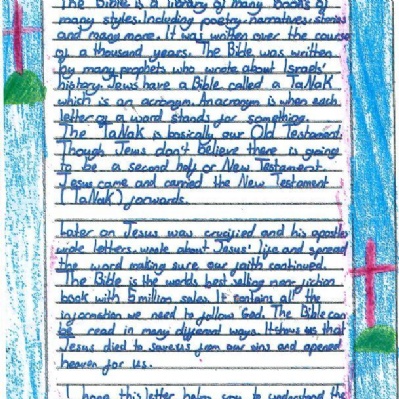 The Bible is a library of many books of
many styles. Including poetry, narratives, stories
and many more. It was written over the course
of a thousand years. The Bible was written
by many prophets who wrote about Israels'
history. Jews have a Bible called a TaNaK
which is an acronym. Anacronym is when each
letter of a word stands for something.
The TaNaK is basically our Old Testament.
Though Jews don't believe there is going
to be a second half or New Testament.
Jesus came and carried the New Testament
(TaNaK) forwards.
Later on Jesus was crucified and his apostles
wrote letters. wrote about Jesus' life and spread
the word making sure our faith continued.
The Bible is the worlds best selling non-fiction
book with 5 million sales. It contains all the
information we need to follow God. The Bible can
be read in many different ways. It shows us that
Jesus died to save us from our sins and opened
heaven for us.
I hope this letter helps you to understand the